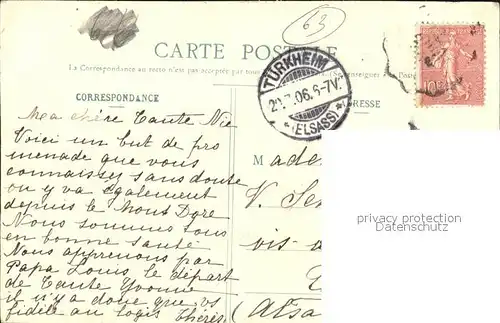 63
CARTE POSTALE
La Correspondance au recto n'est pas acceptée par tous
CORRESPONDANCE
TÜRKHEIM
6-7V.
(ELSASS)
10
Ma chère Tante Nie
Voici un but de pro
menade que vous
connaissez sans doute
on y va également
depuis le Mont Dore
Nous sommes tous
en bonne santé
Nous apprenons par
Papa Louis le départ
de Tante Yvonne
il n'y a donc que vs
fidèle au logis Thérès
M
V.
vis-a
privacy protection
Datenschutz